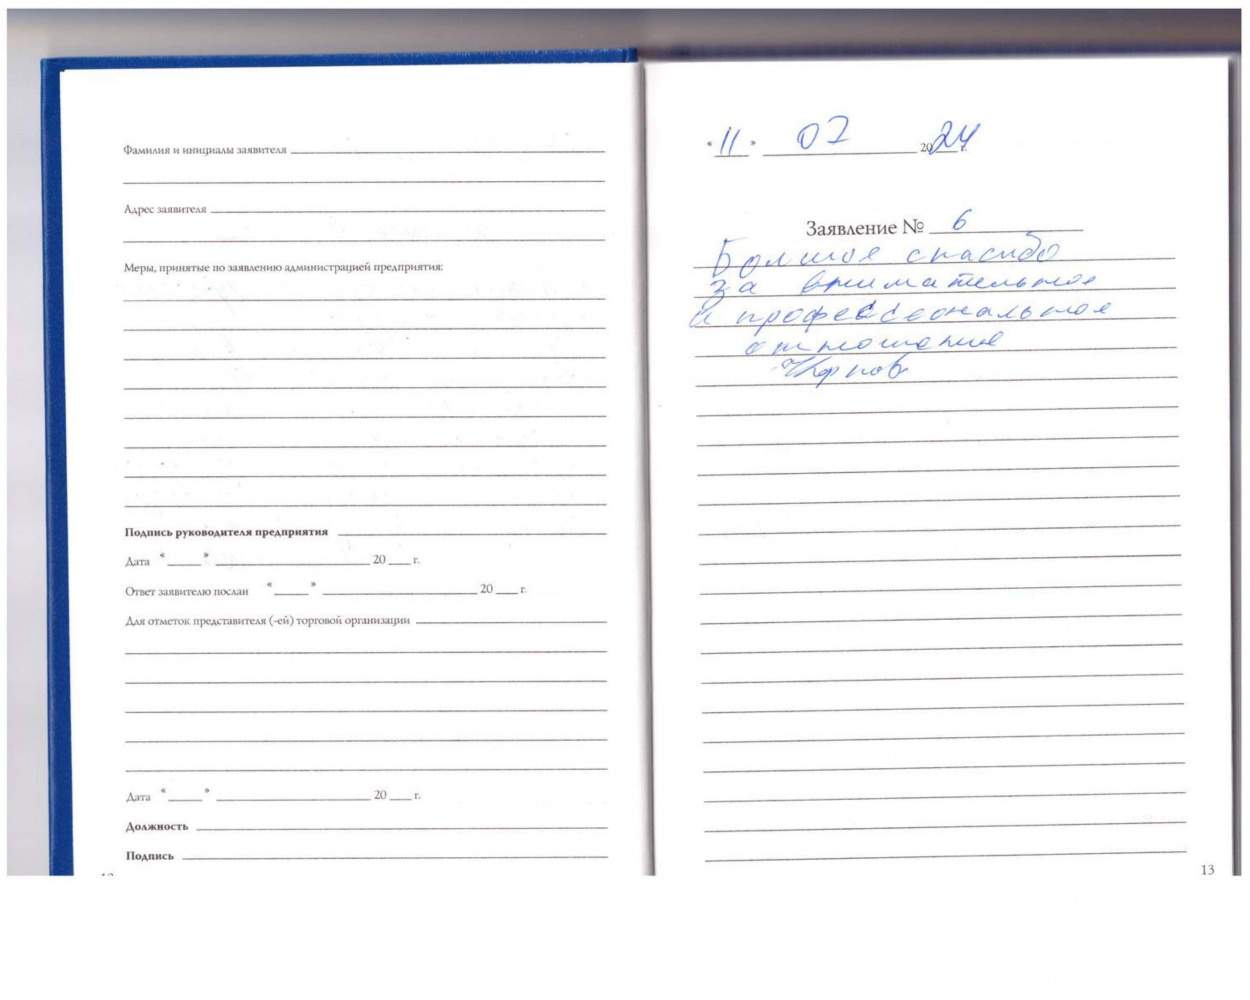 Фамилия и инициалы заявителя
Адрес заявителя
Меры, принятые по заявлению администрацией предприятия:
Подпись руководителя предприятия
Дата « » 20 г.
Ответ заявителю послан « » 20 г.
Для отметок представителя (-ей) торговой организации
Дата « » 20 г.
Должность
Подпись
« 11 » 07 2024 г.
Заявление № 6
Большое спасибо
за внимательное
и профессиональное
отношение
13